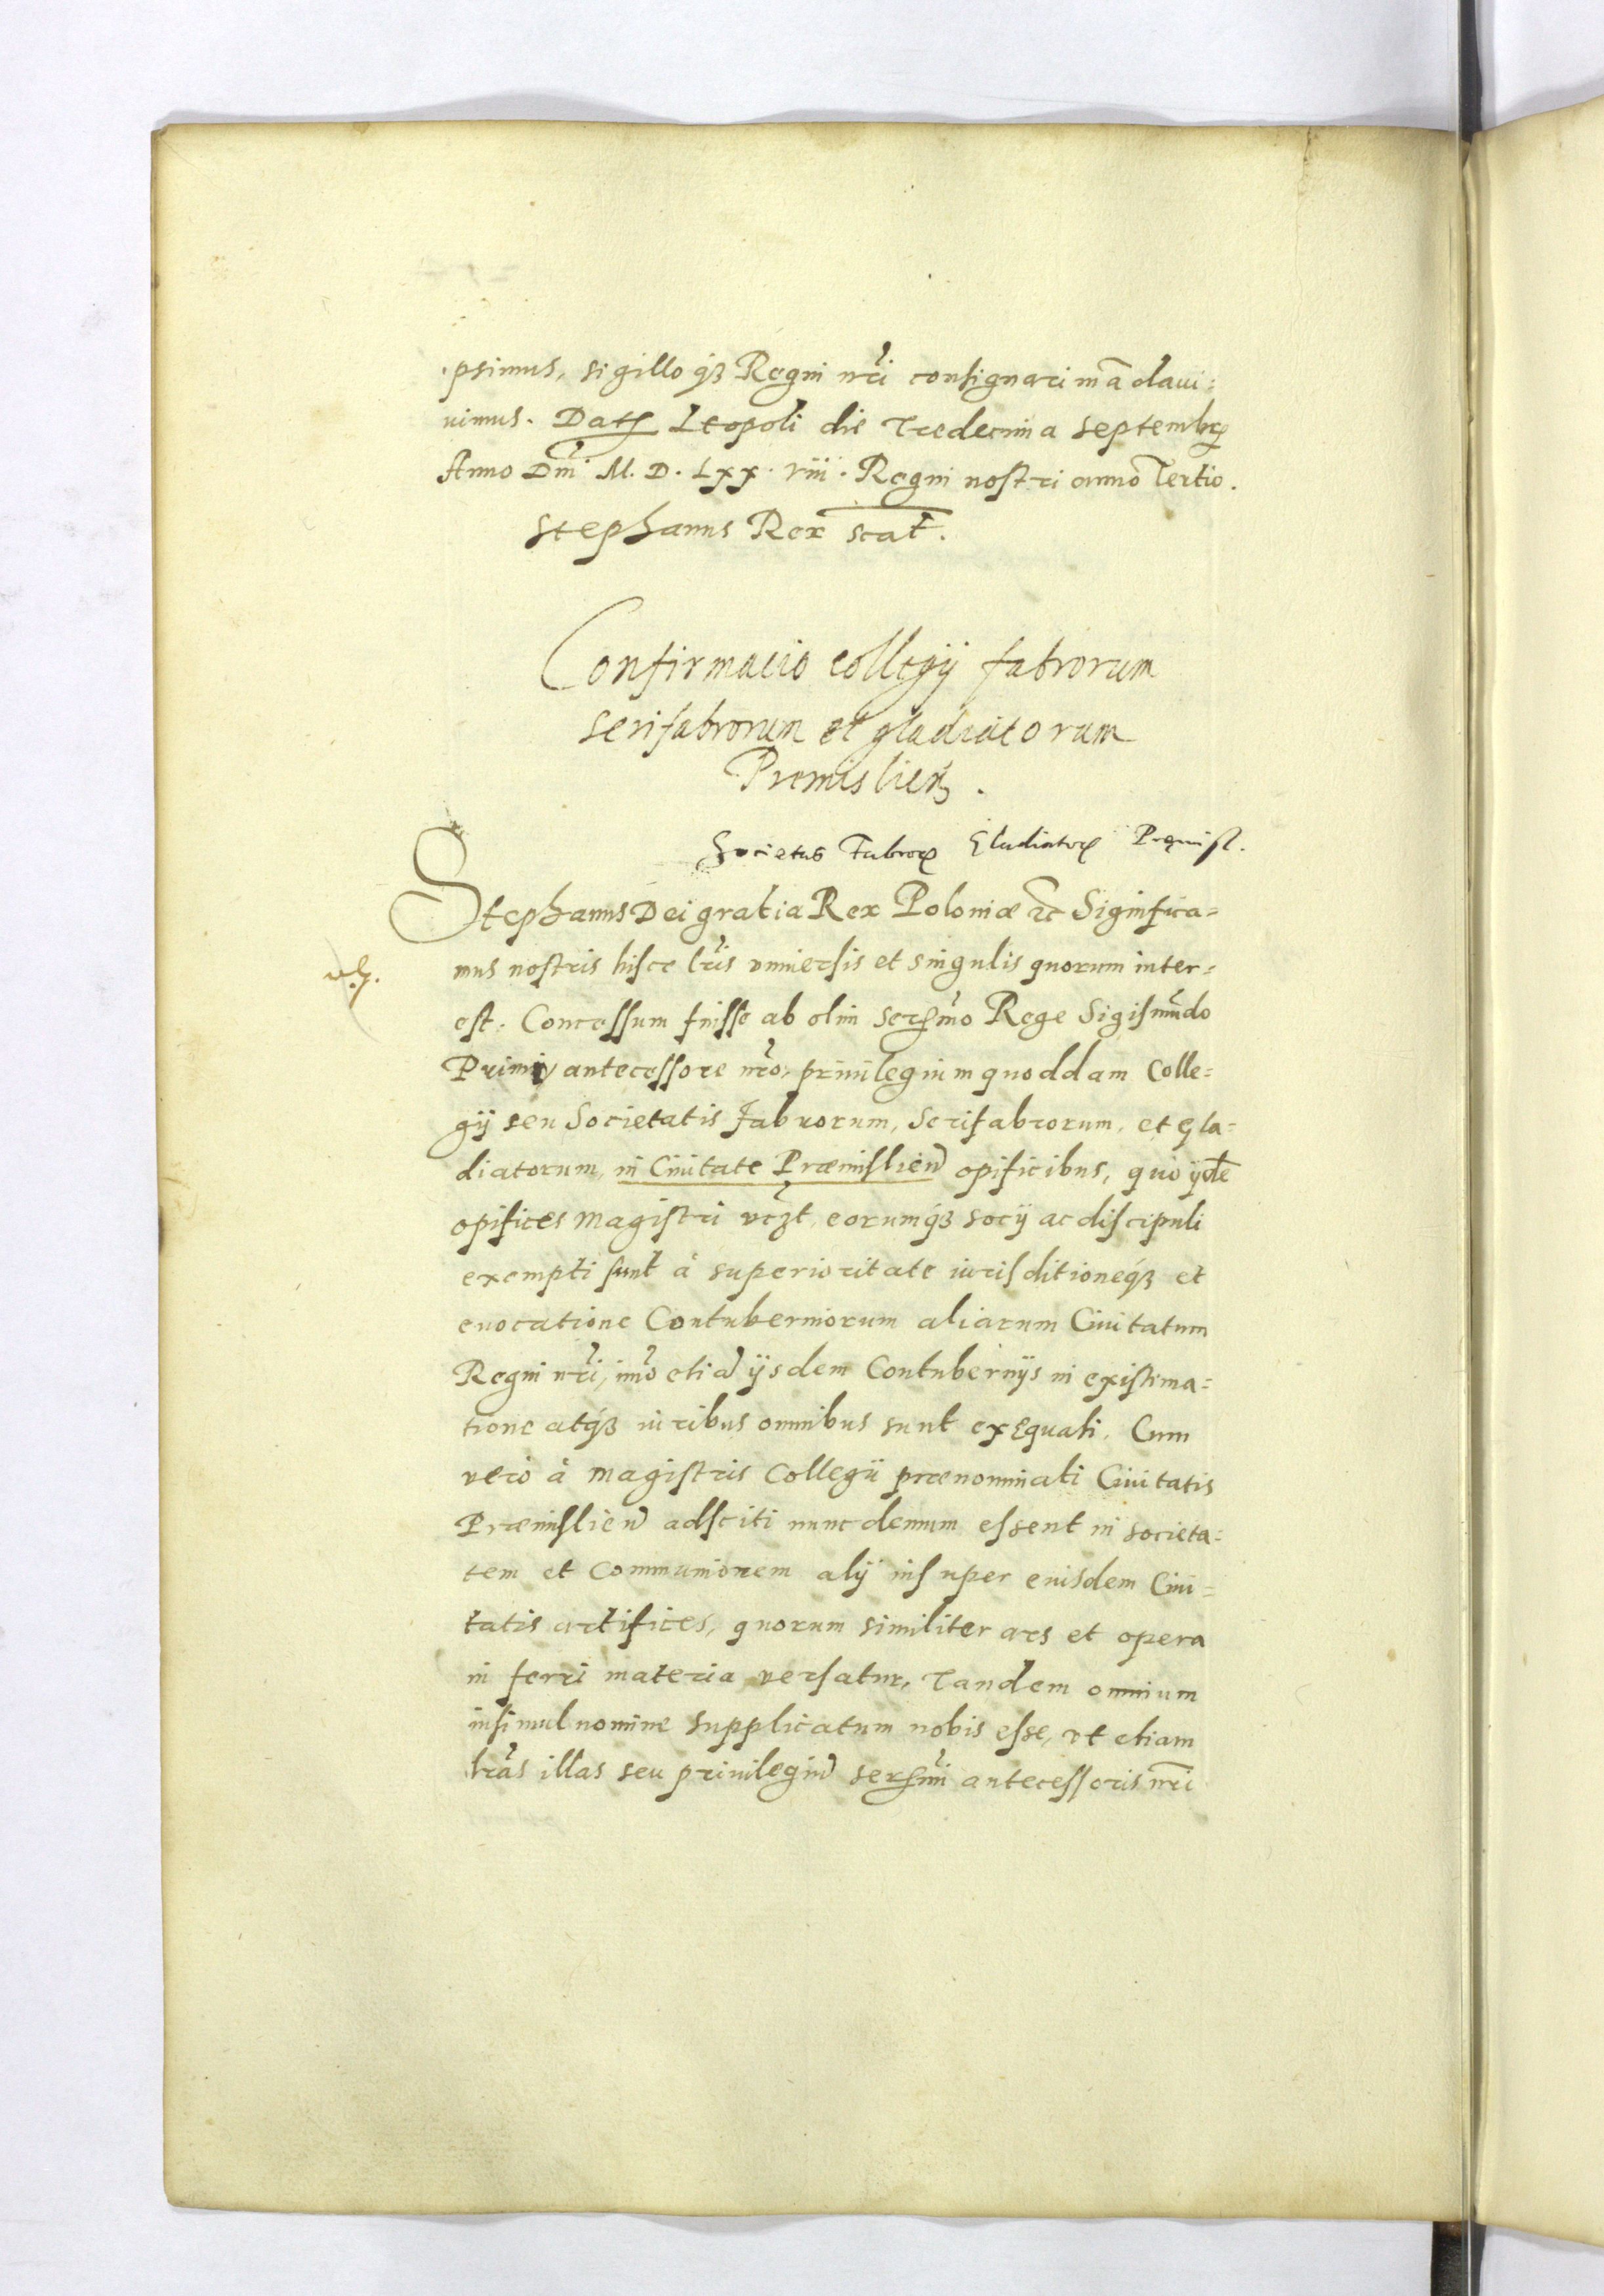 psimus, sigilloq₃ Regni nr̃i consignari mãdaui=
uimus. Datꝭ Leopoli die Tredecima Septembrꝭ
Anno Dnĩ M. D. Lxx. viii. Regni nostri anno Tertio.
Stephanus Rex scãt.
Confirmacio collegij fabrorum
serifabrorum et gladiatorum
Premislieñ.
Societas Fabrorꝭ Gladiatorꝭ Premisl.
Stephanus Dei gratia Rex Poloniæ &c̃ Significa=
mus nostris hisce lr̃is vniuersis et singulis quorum inter=
est. Concessum fuisse ab olim Serẽmo Rege Sigismũdo
Primi antecessore nr̃o, priuilegium quoddam Colle=
gij seu Societatis Fabrorum, Serifabrorum, et Gla=
diatorum, in Ciuitate Præmislień opificibus, quo ijdẽ
opifices magistri vcz̃t, eorumq́₃ socij ac discipuli
exempti sunt à superioritate iurisditioneq́₃ et
euocatione Contuberniorum aliarum Ciuitatum
Regni nr̃i, imõ etiã ijsdem Contubernijs in existima=
tione atq́₃ iuribus omnibus sunt exequati. Cum
vero à magistris Collegii prænominati Ciuitatis
Præmislień adsciti nunc demum essent in societa=
tem et Communionem alij insuper eiusdem Ciui=
tatis artifices, quorum similiter ars et opera
in ferri materia versatur, Tandem omnium
insimul nomine supplicatum nobis esse, vt etiam
lr̃as illas seu priuilegiũ serẽmi antecessoris nr̃i